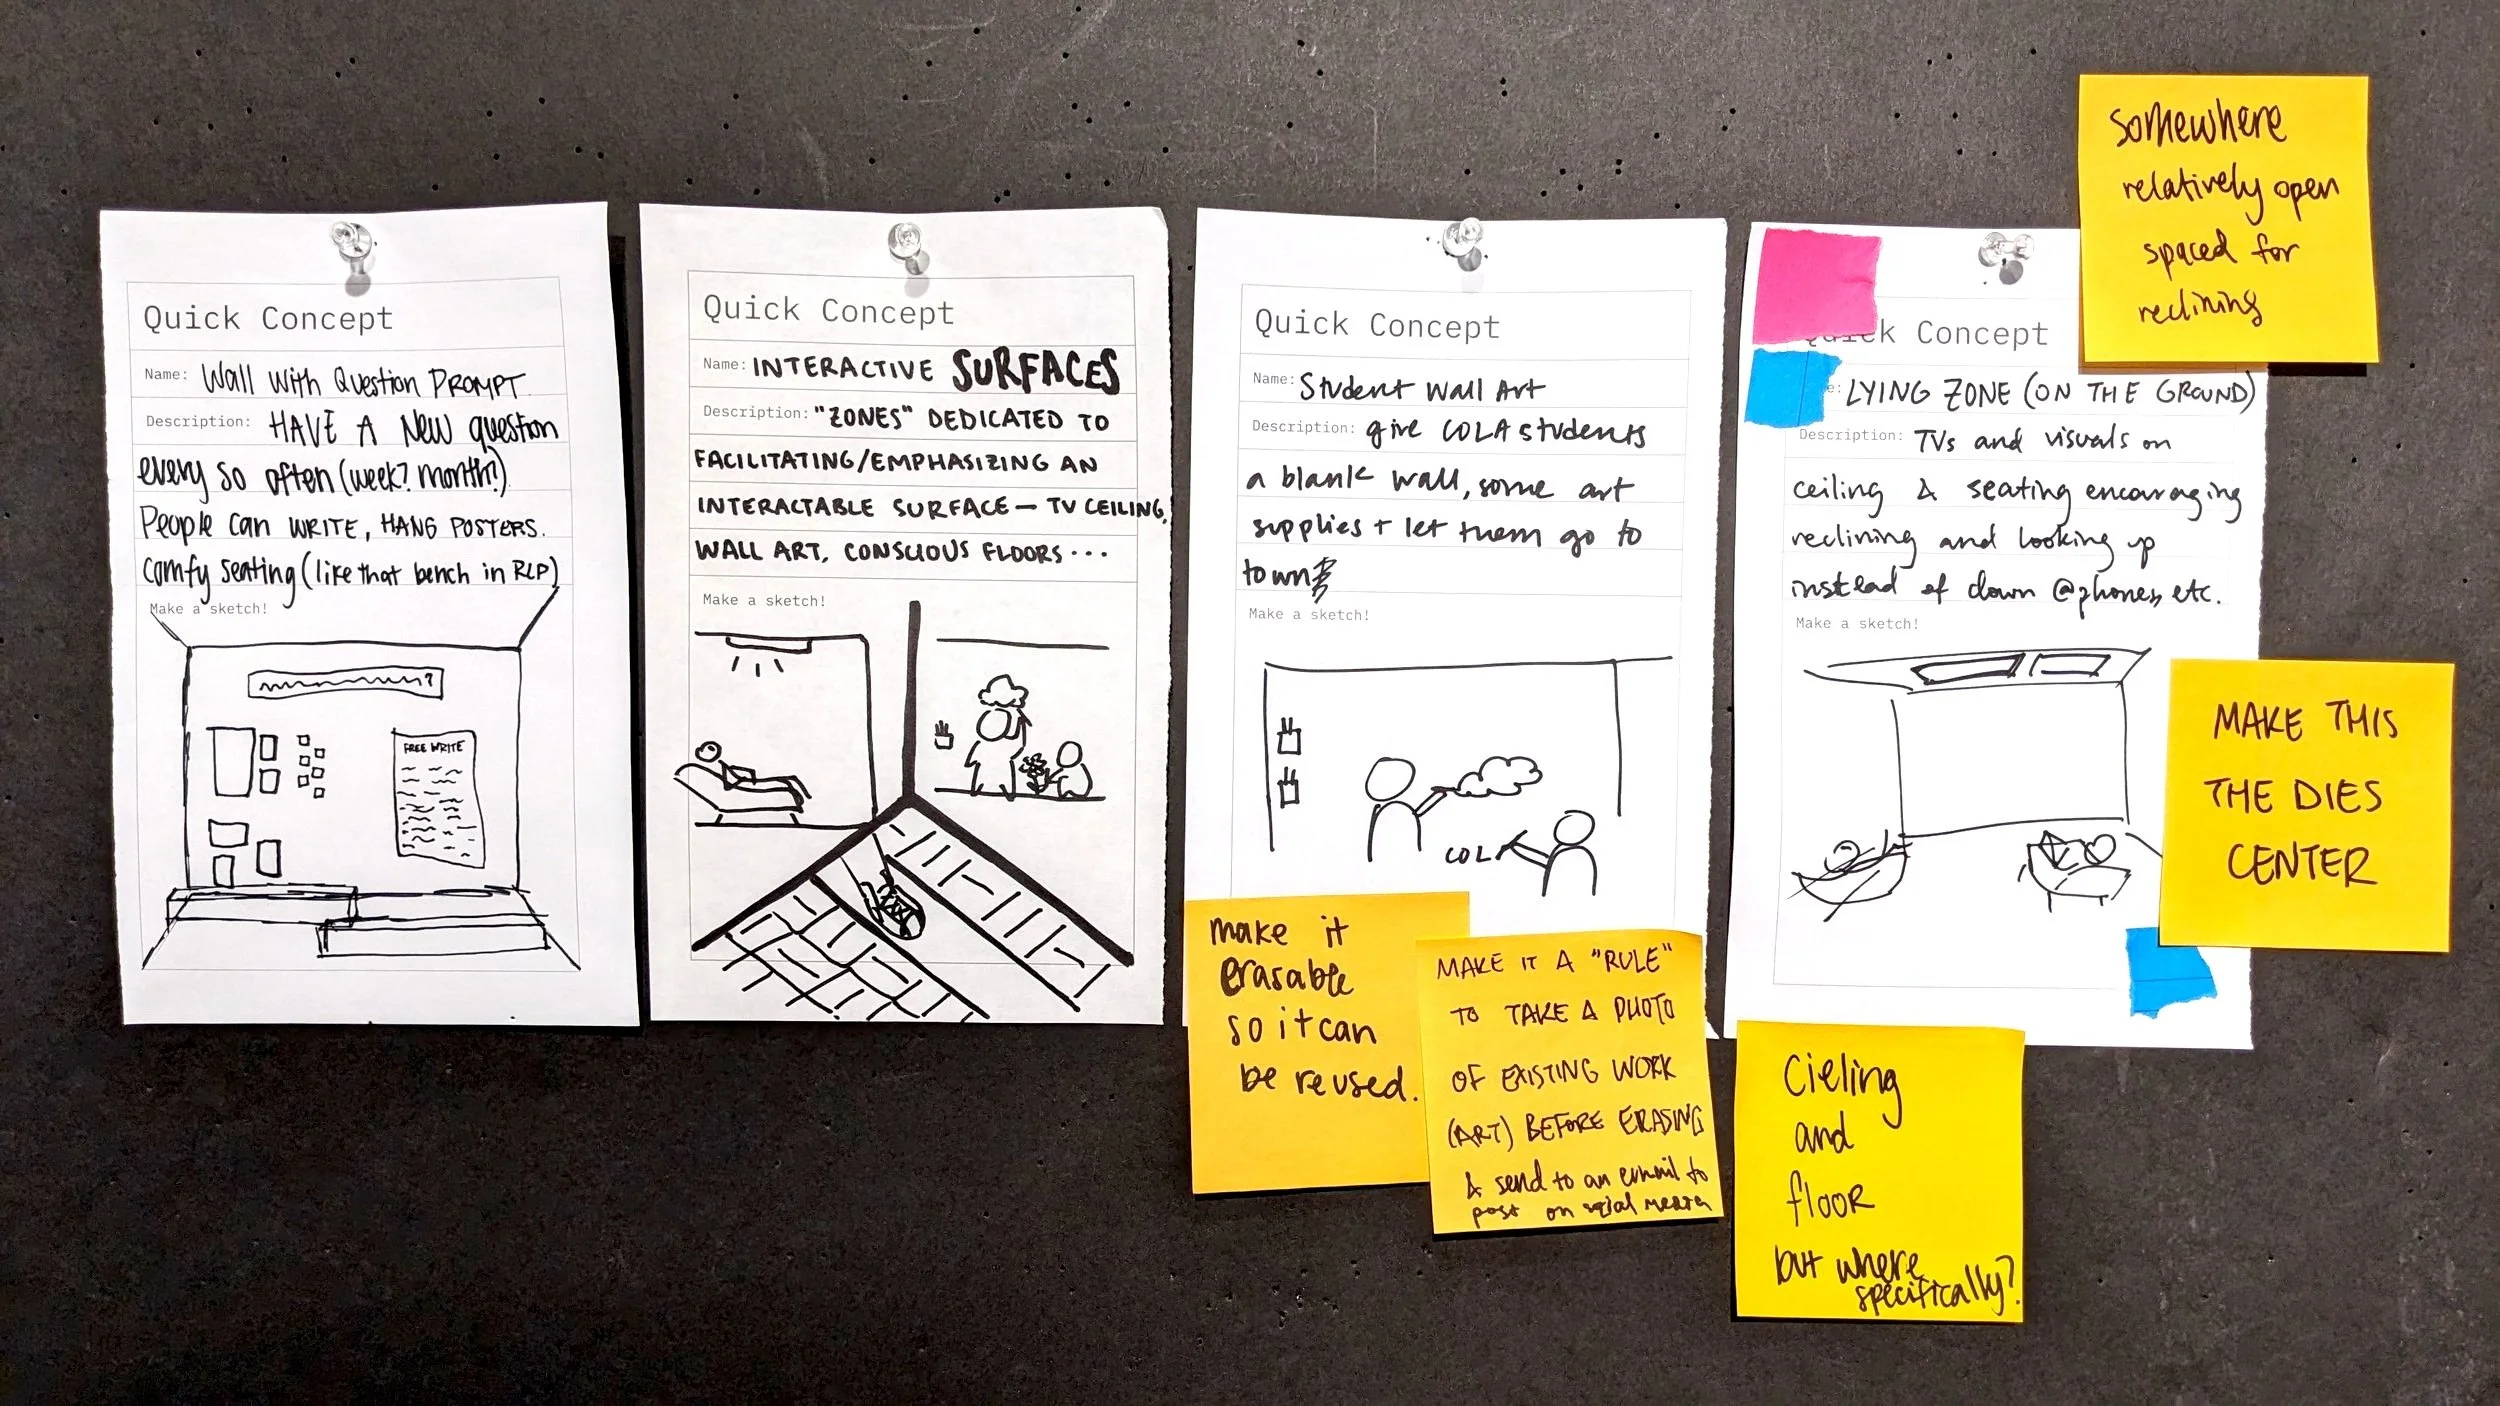 Quick Concept
Name: Wall with Question PROMPT
Description: HAVE A NEW question
every so often (week? month?)
People can WRITE, HANG POSTERS.
comfy seating (like that bench in RLP)
Make a sketch!
?
FREE WRITE
Quick Concept
Name: INTERACTIVE SURFACES
Description: "ZONES" DEDICATED TO
FACILITATING/EMPHASIZING AN
INTERACTABLE SURFACE — TV CEILING,
WALL ART, CONSCIOUS FLOORS...
Make a sketch!
Quick Concept
Name: Student Wall Art
Description: give COLA students
a blank wall, some art
supplies + let them go to
town
Make a sketch!
COLA
make it
erasable
so it can
be reused.
MAKE IT A "RULE"
TO TAKE A PHOTO
OF EXISTING WORK
(ART) BEFORE ERASING
& send to an email to
post on social media
ck Concept
e: LYING ZONE (ON THE GROUND)
Description: TVs and visuals on
ceiling & seating encouraging
reclining and looking up
instead of down @phones, etc.
Make a sketch!
somewhere
relatively open
spaced for
reclining
MAKE THIS
THE DIES
CENTER
Cieling
and
floor
but where
specifically?